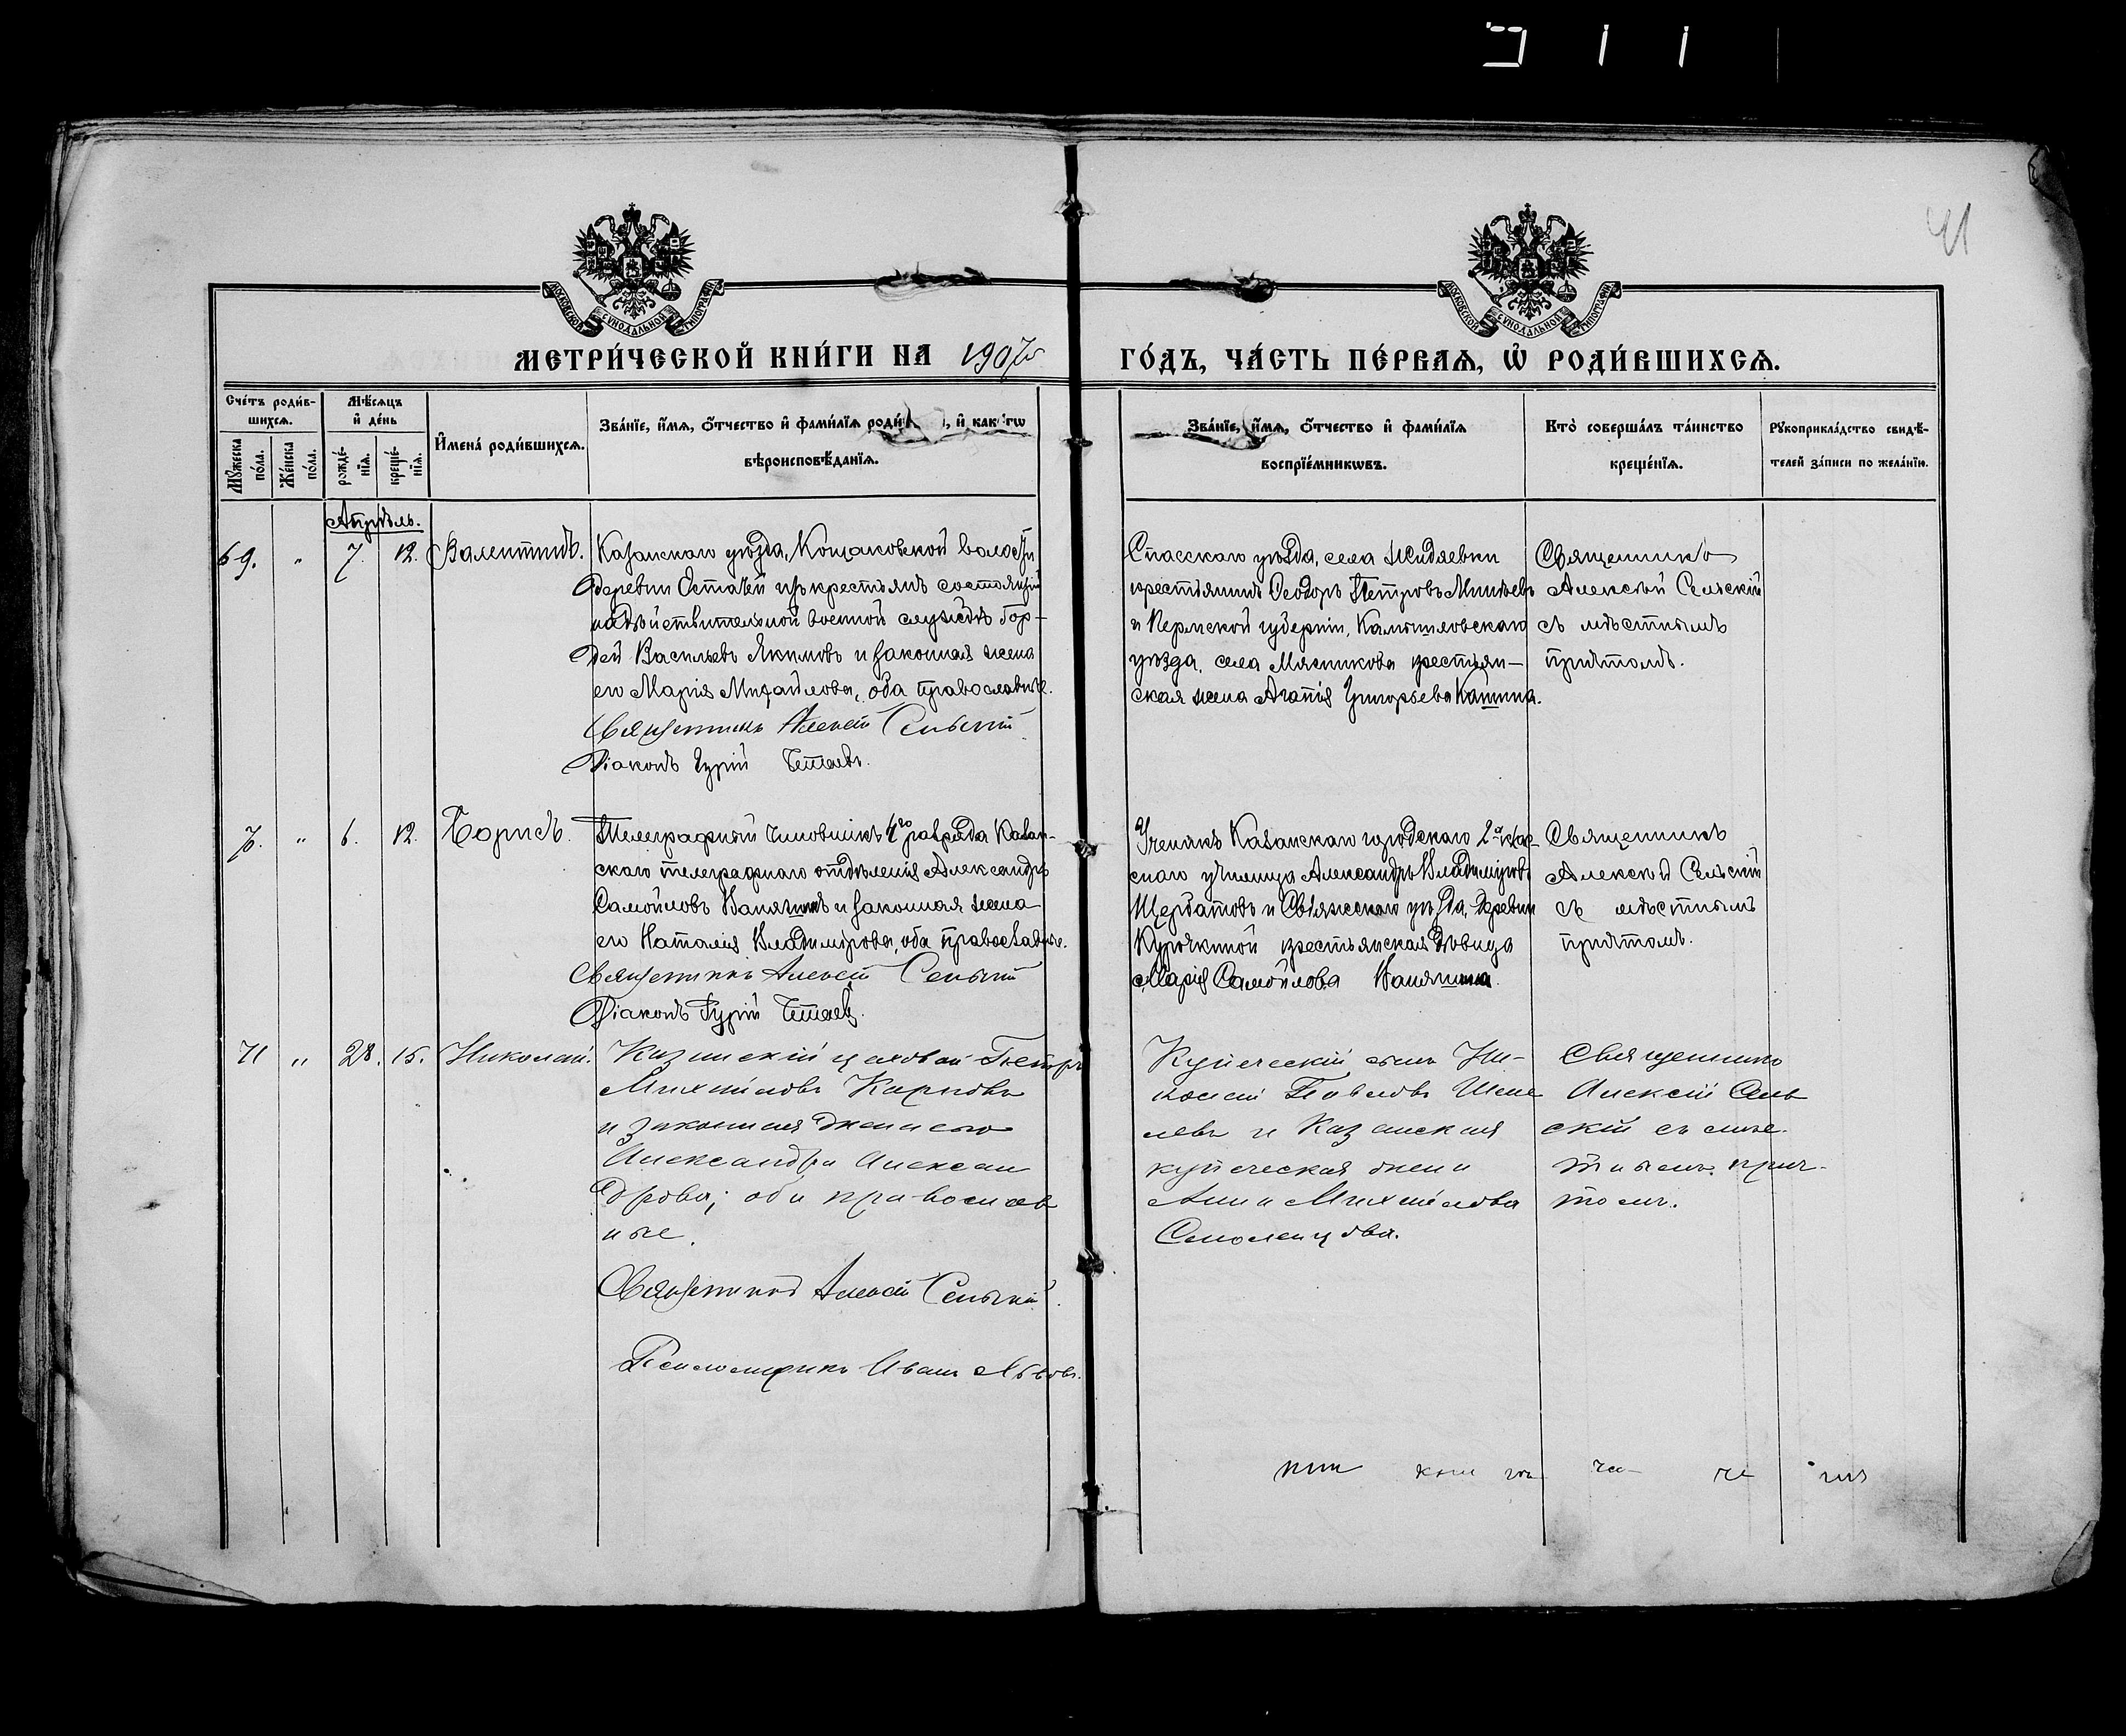 41
МЕТРИ́ЧЕСКОЙ КНИ́ГИ НА 1907й ГО́ДЪ, ЧА́СТЬ ПЕ́РВАѦ, Ѡ҆ РОДИ́ВШИХСѦ.
Сче́тъ роди́в-
шихсѧ.
Мꙋ́жеска по́ла.
Же́нска по́ла.
Мѣ́сѧцъ и҆ де́нь
рожде́-нїѧ.
креще́-нїѧ.
И҆мена̀ роди́вшихсѧ.
Зва́нїе, и҆́мѧ, ѻ҆́тчество и҆ фами́лїѧ роди и҆ как гѡ
вѣроисповѣ́данїѧ.
Зва́нїе, и҆́мѧ, ѻ҆́тчество и҆ фами́лїѧ
воспрїе́мникѡвъ.
Кто̀ соверша́лъ та́инство
креще́нїѧ.
Рꙋкоприкла́дство свидѣ́-
телей за́писи по жела́нїю.
Апрѣль.
69. " 7. 12. Валентинъ.
Казанскаго уѣзда, Кощаковской волости
деревни изъ крестьянъ состоящій
на дѣйствительной военной службѣ Гор-
дей Васильевъ Якимовъ и законная жена
его Марія Михайлова, оба православные.
Священникъ Алексѣй Сельскій
Діаконъ Гурій
Спасскаго уѣзда, села
крестьянинъ Ѳеодоръ Петровъ
и Пермской губерніи, Камышловскаго
уѣзда, села Мясникова крестьян-
ская жена Агапія Григорьева
Священникъ
Алексѣй Сельскій
съ мѣстнымъ
причтомъ.
70. " 6. 12. Борисъ.
Телеграфный чиновникъ 4го разряда Казан-
скаго телеграфнаго отдѣленія Александръ
Самойловъ и законная жена
его Наталія Владимірова, оба православные.
Священникъ Алексѣй Сельскій
Діаконъ Гурій
Ученикъ Казанскаго городскаго 2хклас-
снаго училища Александръ Владиміровъ
Щербатовъ и Свіяжскаго уѣзда, деревни
Курочкиной крестьянская дѣвица
Марія Самойлова
Священникъ
Алексѣй Сельскій
съ мѣстнымъ
причтомъ.
71 " 28. 15. Николай.
Казанскій цеховой Петръ
Михайловъ Карповъ
и законная жена его
Александра Алексан
дрова; оба православ
ные.
Священникъ Алексѣй Сельскій.
Псаломщикъ Иванъ Львовъ.
Купеческій сынъ Ни-
колай Павловъ Шеве
левъ и Казанская
купеческая жена
Анна Михайлова
Смоленцова.
Священникъ
Алексѣй Сель
скій съ мѣс.
тнымъ прич-
томъ.